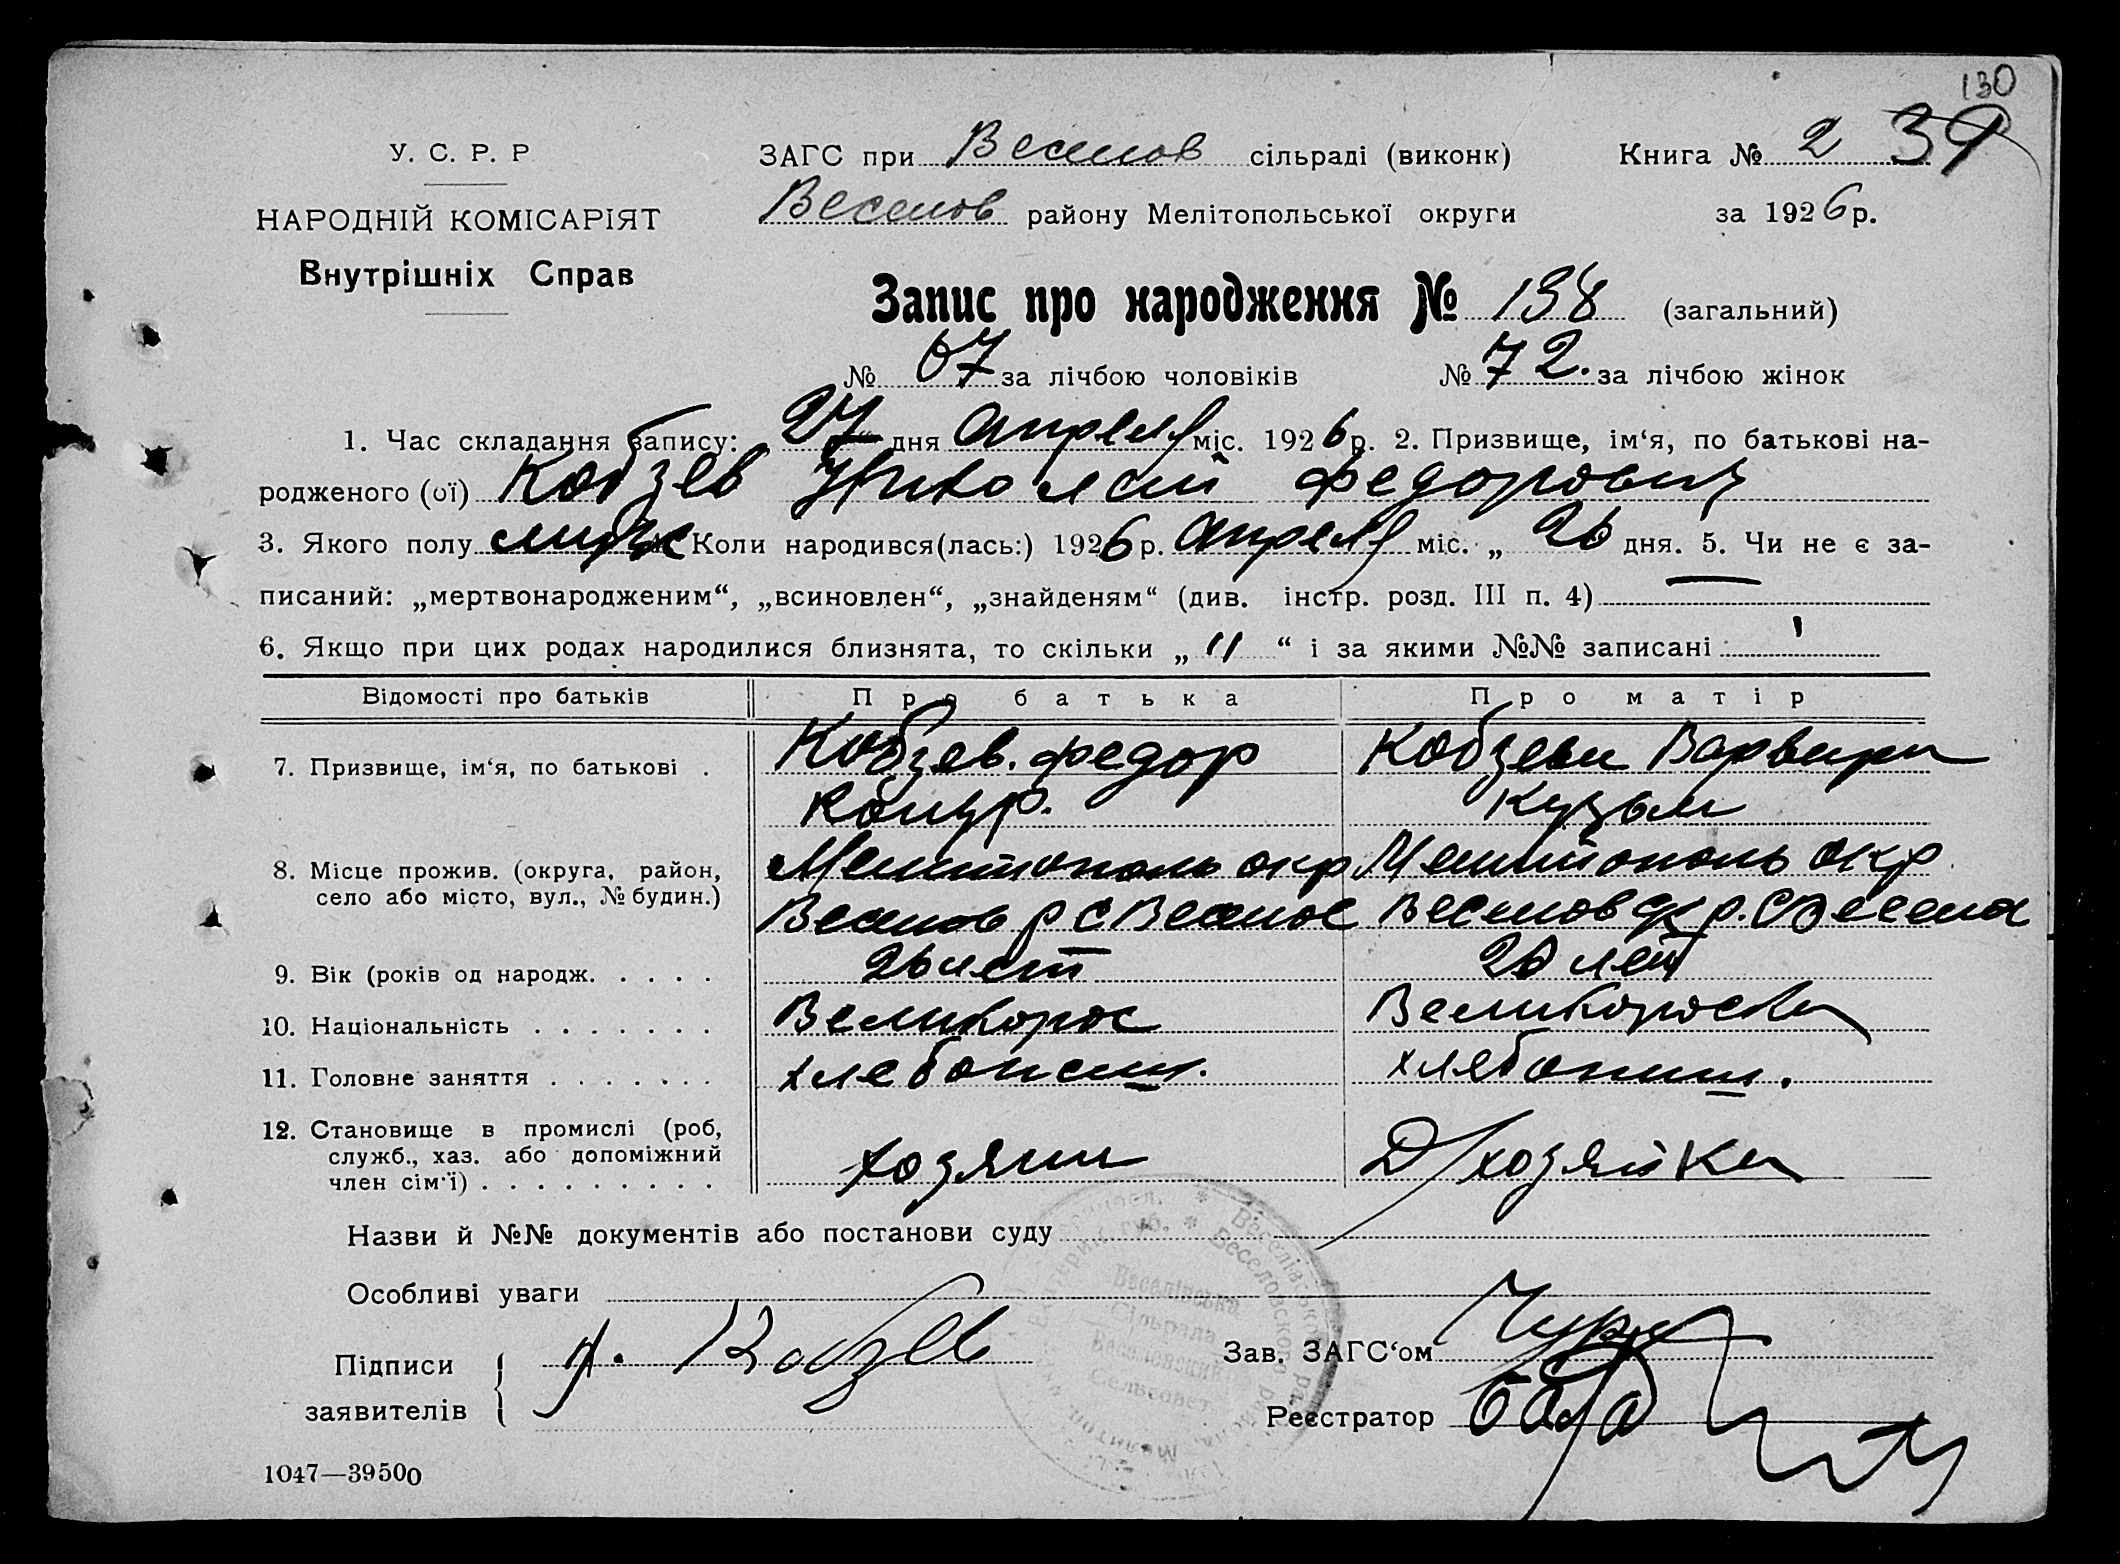 130
У. С. Р. Р
НАРОДНІЙ КОМІСАРІЯТ
Внутрішніх Справ
ЗАГС при Веселов сільраді (виконк)
Книга № 2 39
Веселов району Мелітопольської округи
за 1926 р.
Запис про народження № 138 (загальний)
№ 67 за лічбою чоловіків № 72. за лічбою жінок
1. Час складання запису: 27 дня апреля міс. 1926 р. 2. Призвище, ім‘я, по батькові на-
родженого (ої) Кобзев Николай Федорович
3. Якого полу Коли народився(лась:) 1926 р. апреля міс. „ 26 дня. 5. Чи не є за-
писаний: „мертвонародженим“, „всиновлен“, „знайденям“ (див. інстр. розд. III п. 4) —
6. Якщо при цих родах народилися близнята, то скільки „ 11 “ і за якими №№ записані
Відомості про батьків Про батька Про матір
7. Призвище, ім‘я, по батькові . Кобзев. Федор Кобзева Варвара
Кузьм
8. Місце прожив. (округа, район, Мелитополь окр Мелитополь окр
село або місто, вул., № будин.) Веселов р с Веселое Веселов р. с Весела
9. Вік (років од народж. . . . . 26 лет 20 лет
10. Національність . . . . . . . Великорос Великороска
11. Головне заняття . . . . . . . хлебопаш. хлебопаш.
12. Становище в промислі (роб,
служб., хаз. або допоміжний хозяин Д/хозяйка
член сім'ї) . . . . . . . . .
Назви й №№ документів або постанови суду
Особливі уваги
Підписи
заявителів
Кобзев
Зав. ЗАГС‘ом
Реєстратор
Веселівська
Сільрада
Веселовский
Сельсовет
1047—39500